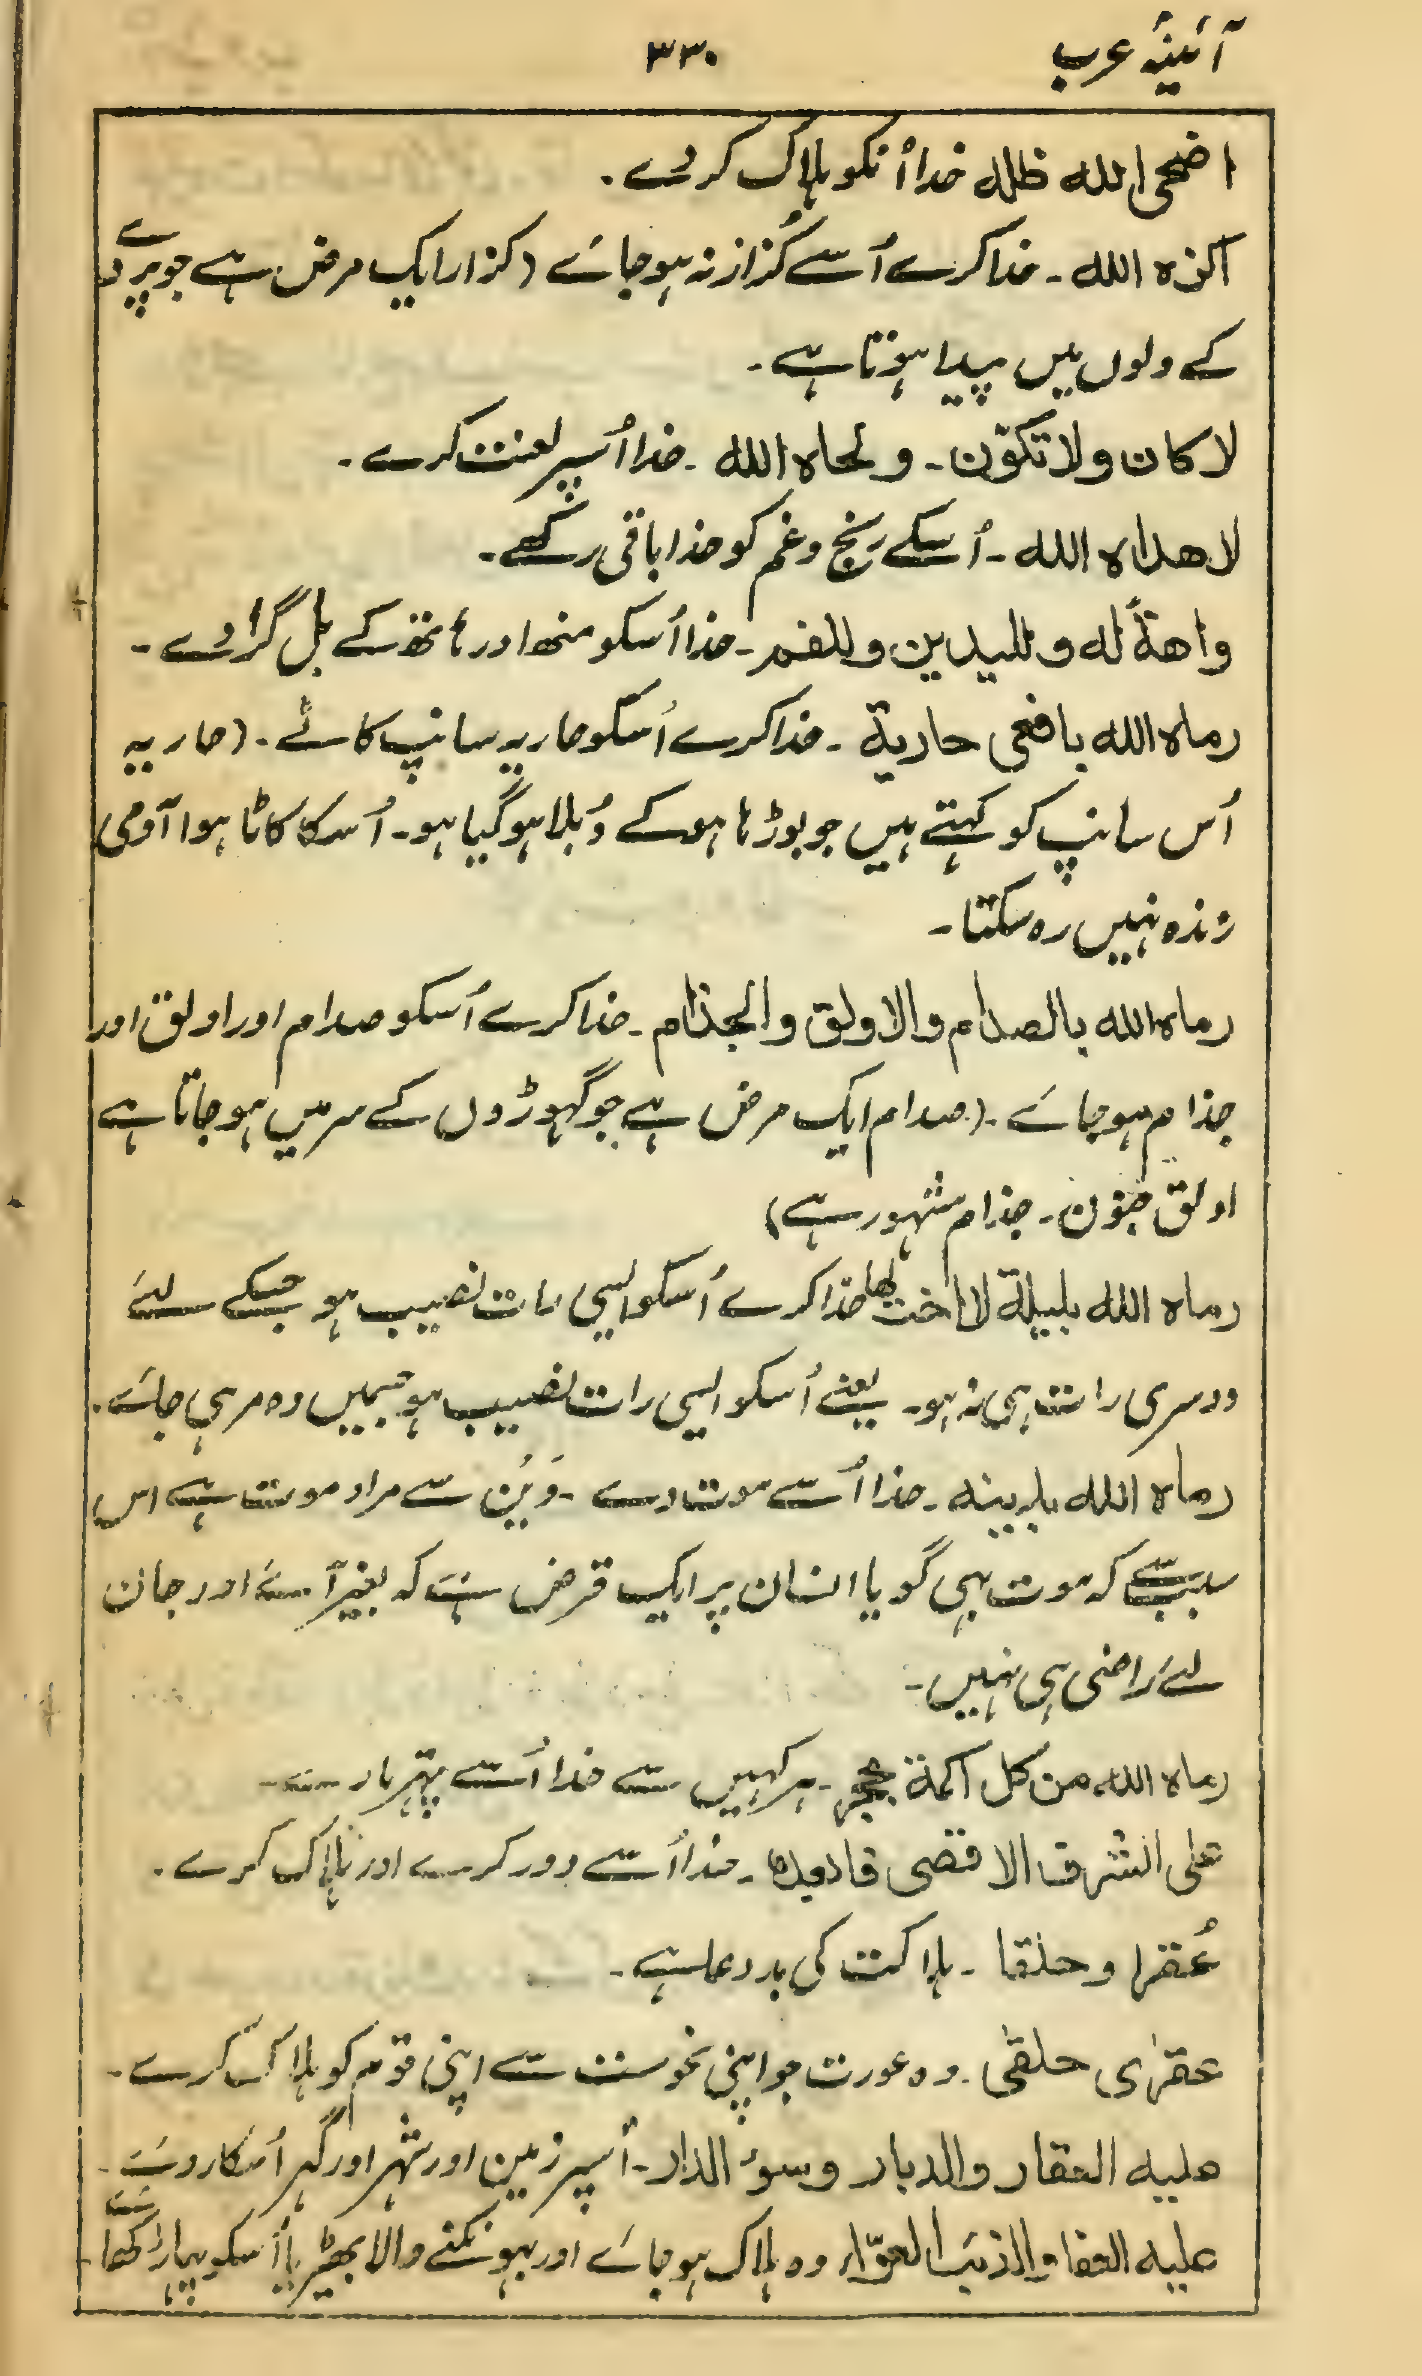 آئینۂ عرب
۳۳۰
اضحی الله ظله خدا اُنکو ہلاک کردے۔
اکزه الله ۔ خدا کرے اُسے کُزاز نہ ہو جائے (کزاز ایک مرض ہے جو
کے دلوں میں پیدا ہوتا ہے۔
لا کان ولا تکوّن ۔ و لحاه الله ۔ خدا اُسپر لعنت کرے ۔
لا هداه الله ۔ اُسکے رنج و غم کو خدا باقی رکھے ۔
واهةً له و للیدین وللفم ۔ خدا اُسکو منھ اور ہاتھ کے بل گرا دے ۔
رماه الله بافعی حاریة ۔ خدا کرے اُسکو حاریہ سانپ کاٹے ۔ (حاریہ
اُس سانپ کو کہتے ہیں جو بوڑہا ہو کے دُبلا ہو گیا ہو۔ اُسکا کاٹا ہوا آدمی
زندہ نہیں رہ سکتا۔
رماه الله بالصدام والاولق والجذام ۔ خدا کرے اُسکو صدام اور اولق اور
جذام ہو جائے ۔ (صدام ایک مرض ہے جو گہوڑوں کے سر میں ہو جاتا ہے
اولق جنون ۔ جذام مشہور ہے)
رماه الله بلیلة لا اخت لها خدا کرے اُسکو ایسی رات نصیب ہو جسکے لئے
دوسری رات ہی نہ ہو۔ یعنے اُسکو ایسی رات نصیب ہو جسمیں وہ مر ہی جائے۔
رماه الله بدینه ۔ خدا اُسے موت دے ۔ دَین سے مراد موت ہے اس
سبب سے کہ موت بہی گویا انسان پر ایک قرض ہے کہ بغیر آئے اور جان
لئے راضی ہی نہیں ۔
رماه الله من کل اکمة بحجر ۔ ہر کہیں سے خدا اُسے پتہر مارے ۔
علی الشرف الاقصی فابعد ۔ خدا اُسے دور کرے اور ہلاک کرے ۔
عُقرا و حلقا ۔ ہلاکت کی بد دعا ہے ۔
عقرٰی حلقٰی ۔ وہ عورت جو اپنی نحوست سے اپنی قوم کو ہلاک کرے ۔
علیه العقار والدبار و سوء الدار ۔ اُسپر زمین اور شہر اور گہر اُسکا روئے ۔
علیه العفا والذئب العوّاء وہ ہلاک ہو جائے اور بہونکنے والا بھیڑیا اُسکو پہاڑ